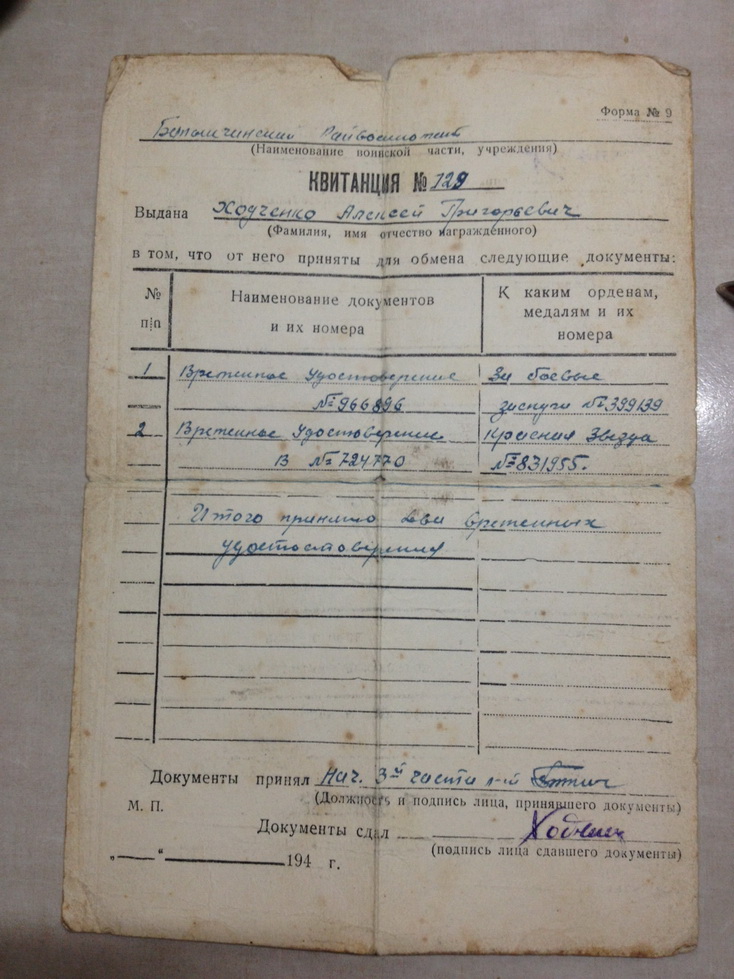 Форма № 9
Райвоенкомат
(Наименование воинской части, учреждения)
КВИТАНЦИЯ № 129
Выдана Ходченко Алексей Григорьевич
(Фамилия, имя отчество награждённого)
в том, что от него приняты для обмена следующие документы:
№ п/п
Наименование документов и их номера
К каким орденам, медалям и их номера
1 Временное Удостоверение За боевые
№ 966896 заслуги № 399139
2 Временное Удостоверение Красная Звезда
В № 724770 № 831955.
Итого принято два временных
удостостоверения
Документы принял Нач. 3й части л-й
(Должность и подпись лица, принявшего документы)
М. П.
Документы сдал
(подпись лица сдавшего документы)
„ “ 194 г.